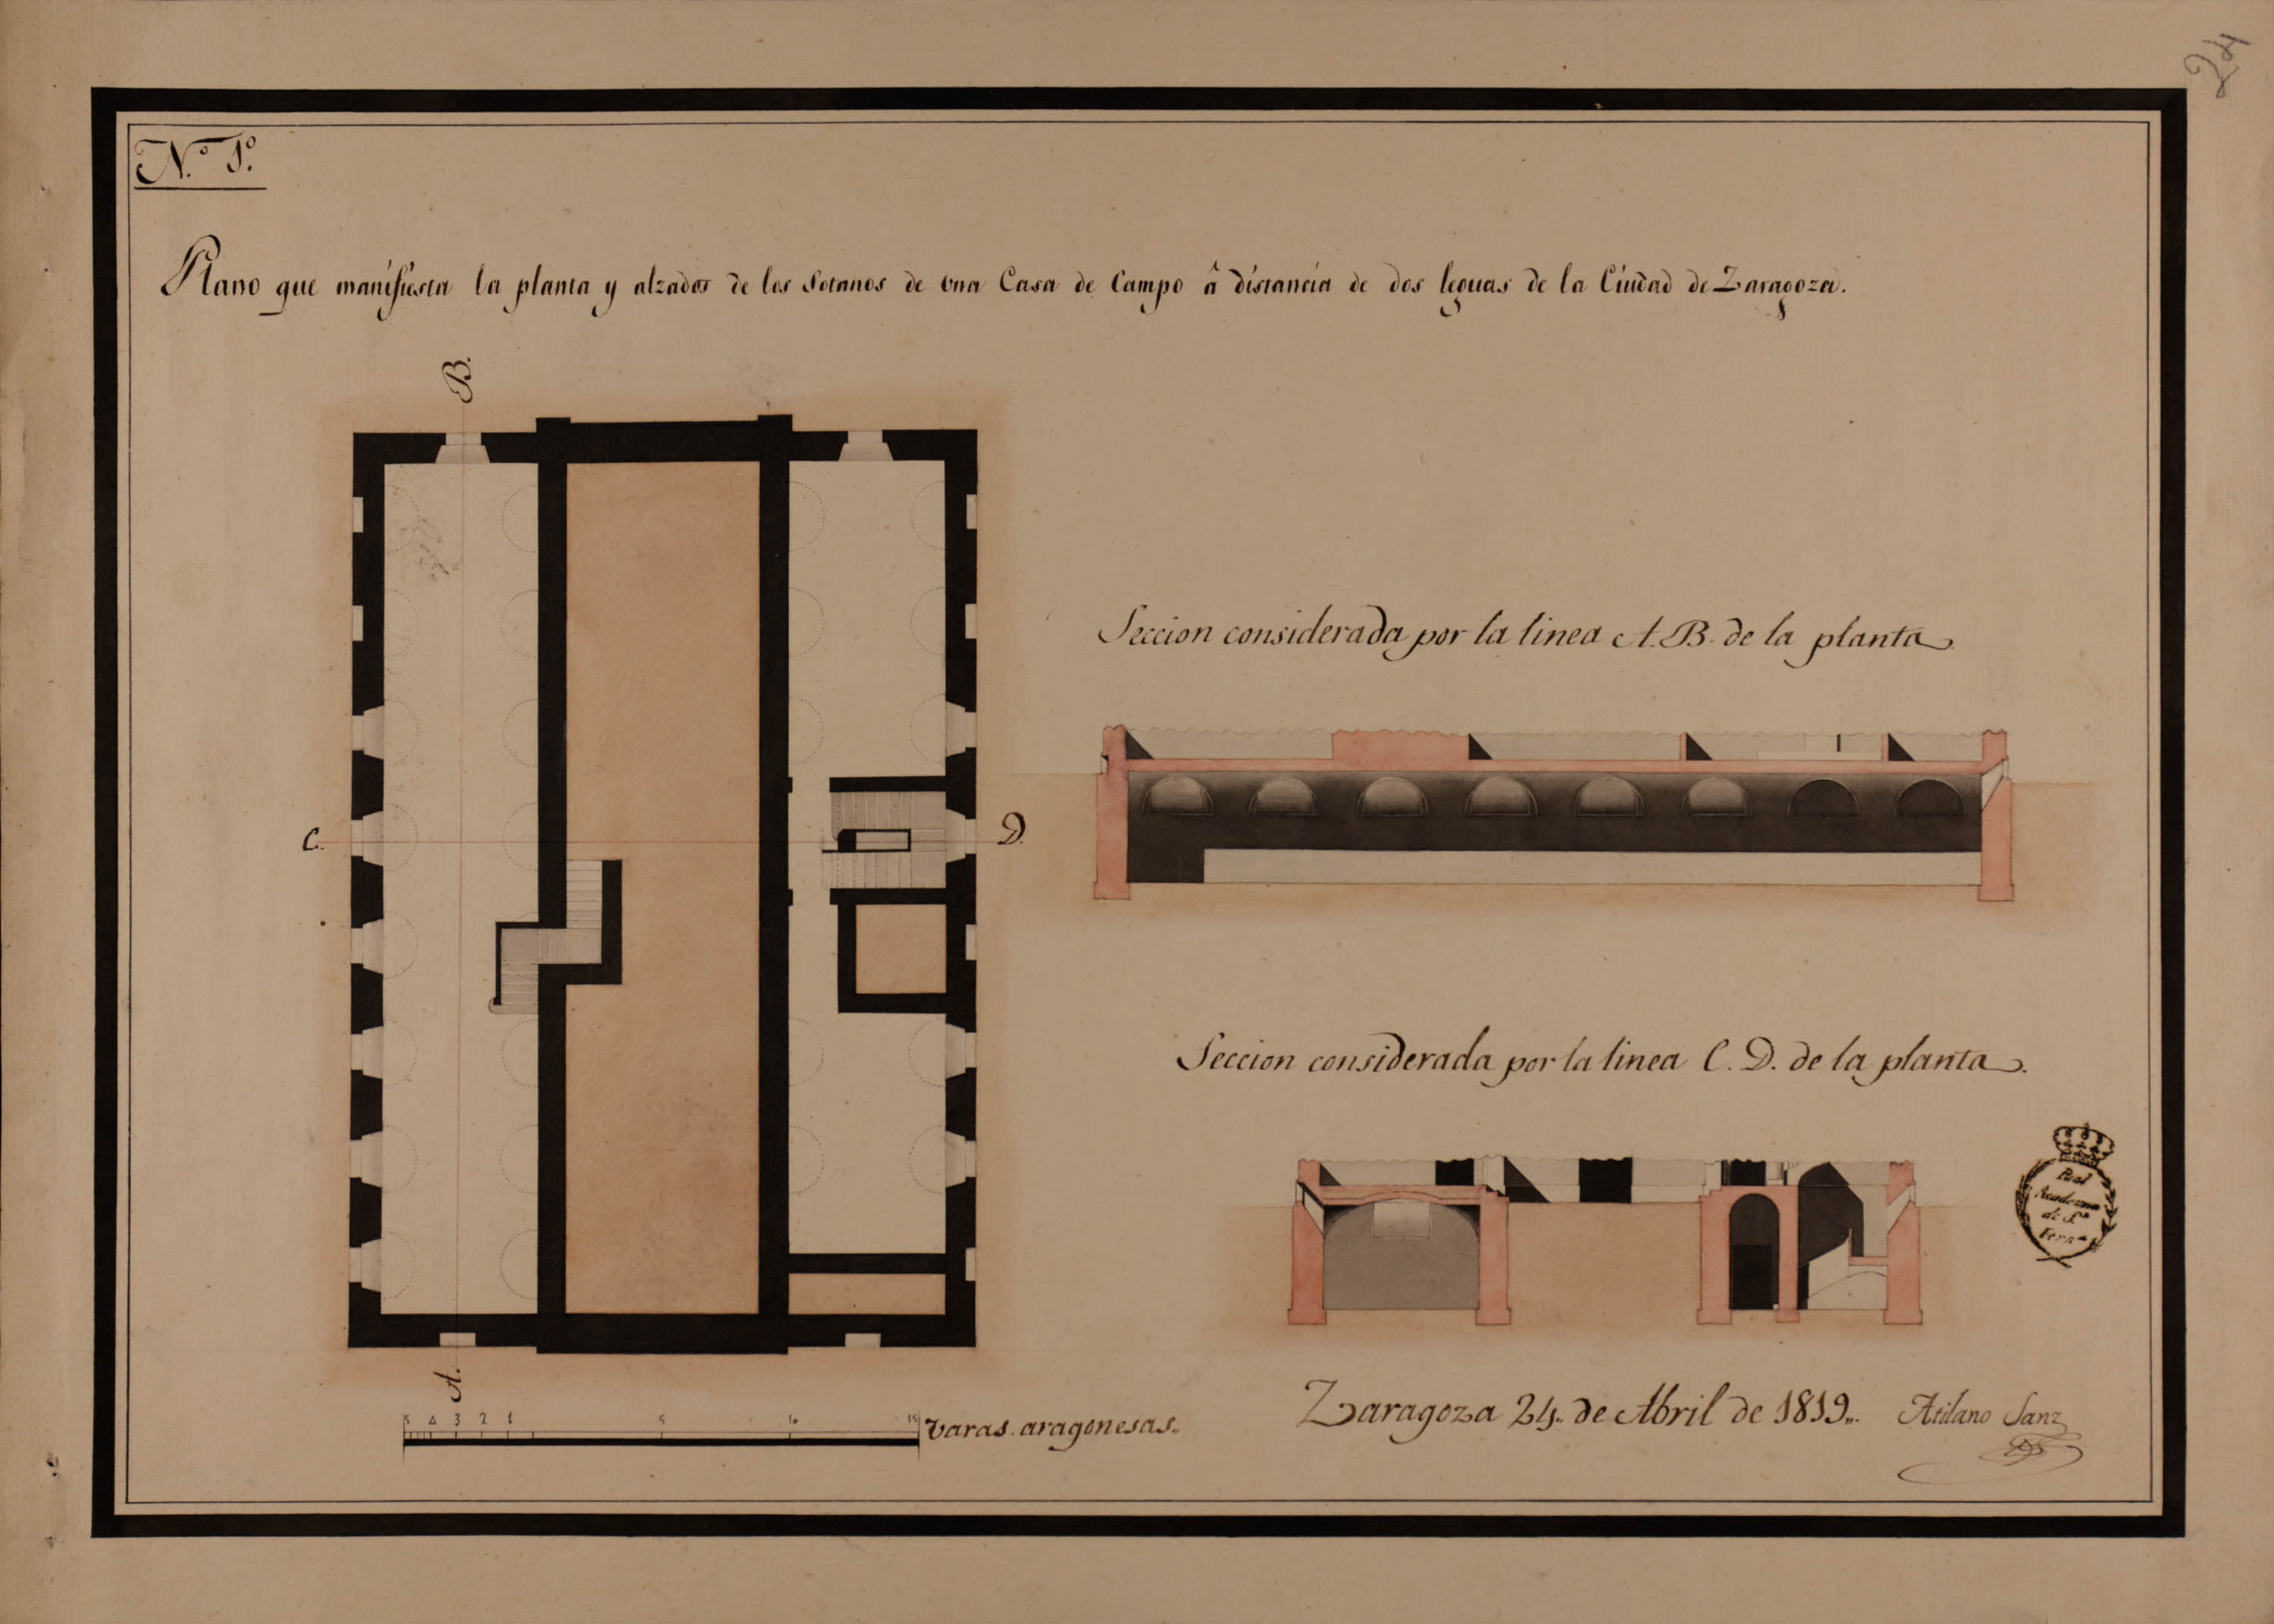 24
N.º 1º.
Plano que manifiesta la planta y alzados de los Sotanos de vna Casa de Campo â distancia de dos leguas de la Ciudad de Zaragoza.
B.
Seccion considerada por la linea A. B. de la planta.
C.
D.
Seccion considerada por la linea C. D. de la planta.
Real
Academia
de S.n
Fern.do
A.
5 4 3 2 1 5 10 15 varas aragonesas.
Zaragoza 24. de Abril de 1819. Atilano Sanz